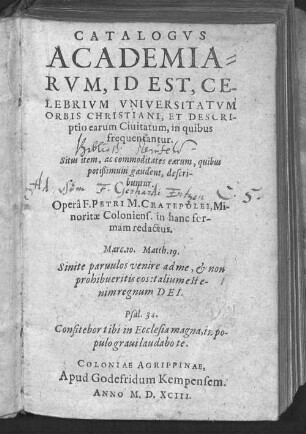 CATALOGVS
ACADEMIA-
RVM, ID EST, CE-
LEBRIVM VNIVERSITATVM
ORBIS CHRISTIANI, ET DESCRI-
ptio earum Ciuitatum, in quibus
frequentantur.
Situs item, ac commoditates earum, quibus
potissimum gaudent, descri-
buntur.
Operâ F. PETRI M. CRATEPOLEI, Mi-
noritæ Coloniens. in hanc for-
mam redactus.
Marc. 10. Matth. 19.
Sinite paruulos venire ad me, & non
prohibueritis eos: talium est e-
nim regnum DEI.
Psal. 34.
Confitebor tibi in Ecclesia magna, in po-
pulo graui laudabo te.
COLONIAE AGRIPPINAE,
Apud Godefridum Kempensem.
ANNO M. D. XCIII.